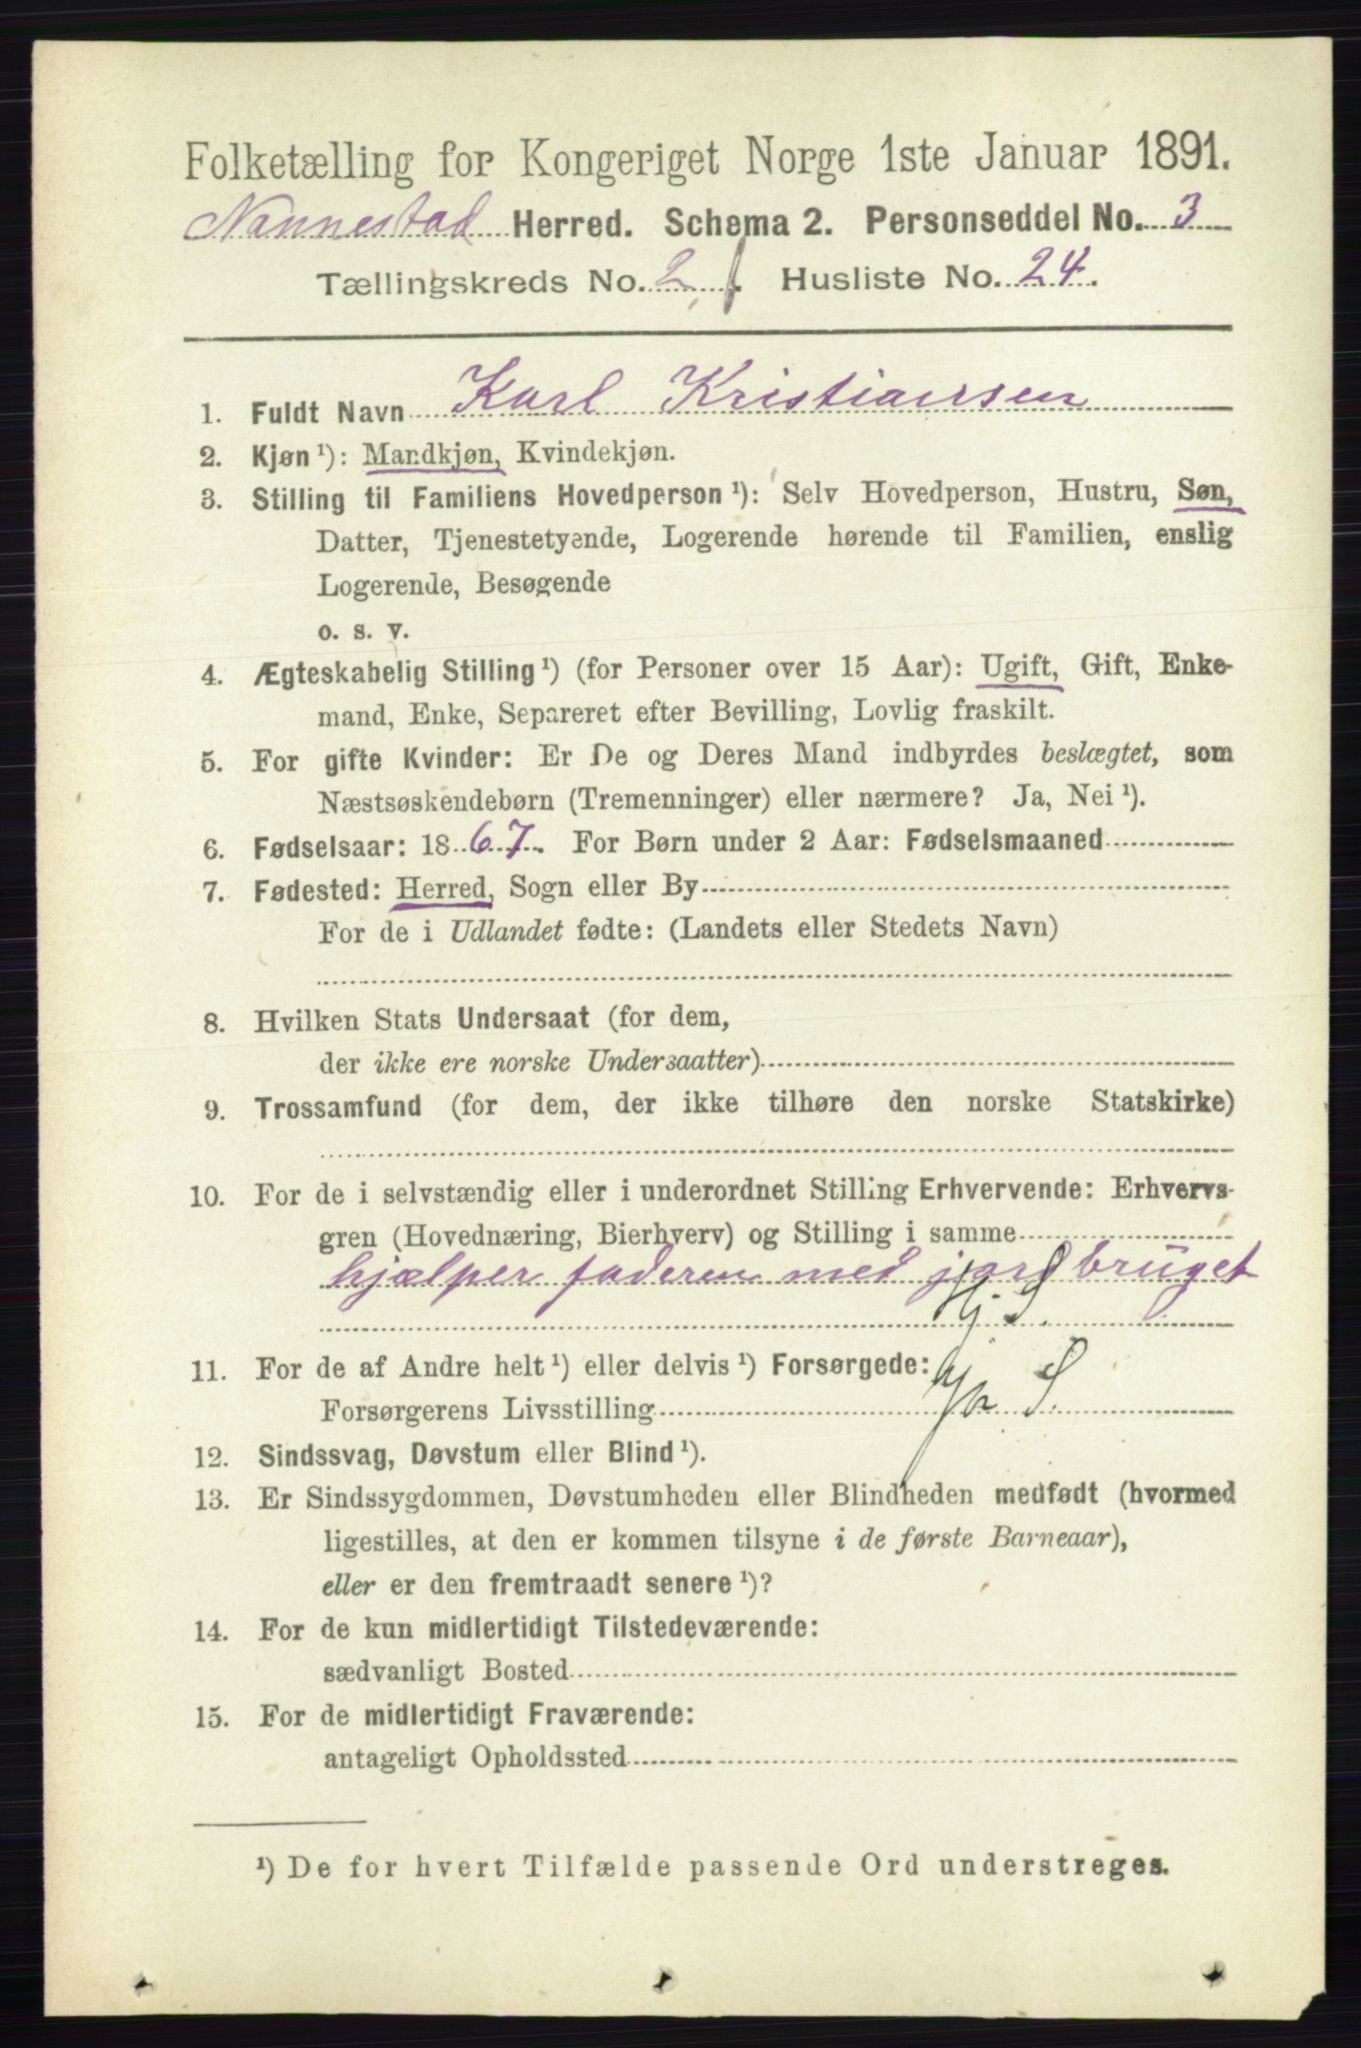 Folketælling for Kongeriget Norge 1ste Januar 1891.
Nannestad Herred. Schema 2. Personseddel No. 3
Tællingskreds No. 2. Husliste No. 24.
1. Fuldt Navn Karl Kristiansen
2. Kjøn ¹): Mandkjøn, Kvindekjøn.
3. Stilling til Familiens Hovedperson ¹): Selv Hovedperson, Hustru, Søn,
Datter, Tjenestetyende, Logerende hørende til Familien, enslig
Logerende, Besøgende
o. s. v.
4. Ægteskabelig Stilling ¹) (for Personer over 15 Aar): Ugift, Gift, Enke-
mand, Enke, Separeret efter Bevilling, Lovlig fraskilt.
5. For gifte Kvinder: Er De og Deres Mand indbyrdes beslægtet, som
Næstsøskendebørn (Tremenninger) eller nærmere? Ja, Nei ¹).
6. Fødselsaar: 1867. For Børn under 2 Aar: Fødselsmaaned
7. Fødested: Herred, Sogn eller By
For de i Udlandet fødte: (Landets eller Stedets Navn)
8. Hvilken Stats Undersaat (for dem,
der ikke ere norske Undersaatter)
9. Trossamfund (for dem, der ikke tilhøre den norske Statskirke)
10. For de i selvstændig eller i underordnet Stilling Erhvervende: Erhvervs-
gren (Hovednæring, Bierhverv) og Stilling i samme
hjælper faderen med jordbruget
Hj. S.
11. For de af Andre helt ¹) eller delvis ¹) Forsørgede:
Forsørgerens Livsstilling S.
12. Sindssvag, Døvstum eller Blind ¹).
13. Er Sindssygdommen, Døvstumheden eller Blindheden medfødt (hvormed
ligestilles, at den er kommen tilsyne i de første Barneaar),
eller er den fremtraadt senere ¹)?
14. For de kun midlertidigt Tilstedeværende:
sædvanligt Bosted
15. For de midlertidigt Fraværende:
antageligt Opholdssted
¹) De for hvert Tilfælde passende Ord understreges.